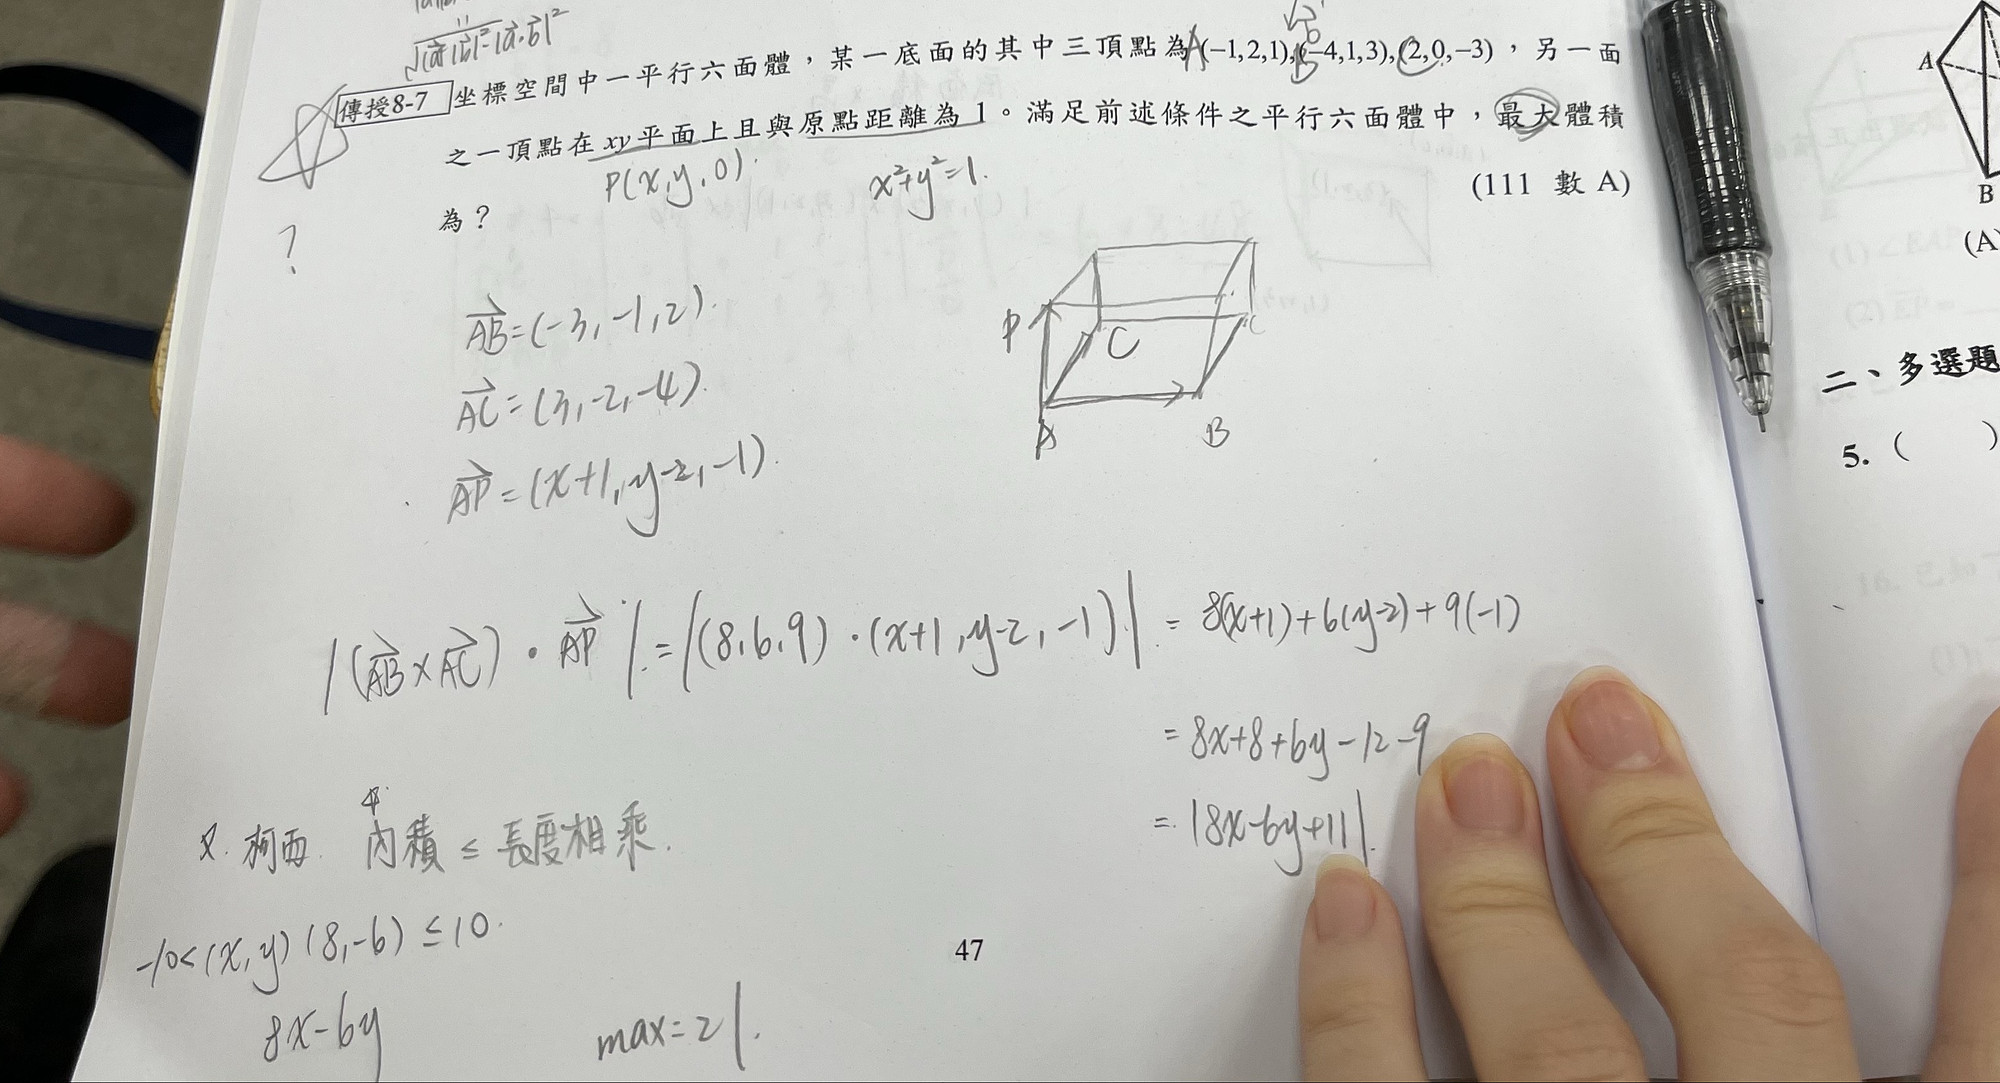 √|a|²|b|²-|a·b|²
傳授8-7 坐標空間中一平行六面體，某一底面的其中三頂點為A(−1,2,1),B(−4,1,3),C(2,0,−3)，另一面
之一頂點在 xy 平面上且與原點距離為 1。滿足前述條件之平行六面體中，最大體積
為？ (111 數 A)
P(x,y,0). x²+y²=1.
?
AB=(-3,-1,2).
AC=(3,-2,-4).
AP=(x+1,y-2,-1).
P
C
A
B
|(AB×AC)·AP|=|(8,6,9)·(x+1,y-2,-1)|=8(x+1)+6(y-2)+9(-1)
=8x+8+6y-12-9
=|8x-6y+11|.
又.柯西 內積≤長度相乘.
-10<(x,y)(8,-6)≤10.
8x-6y max=21.
47
A
B
(A)
二、多選題
5. ( )